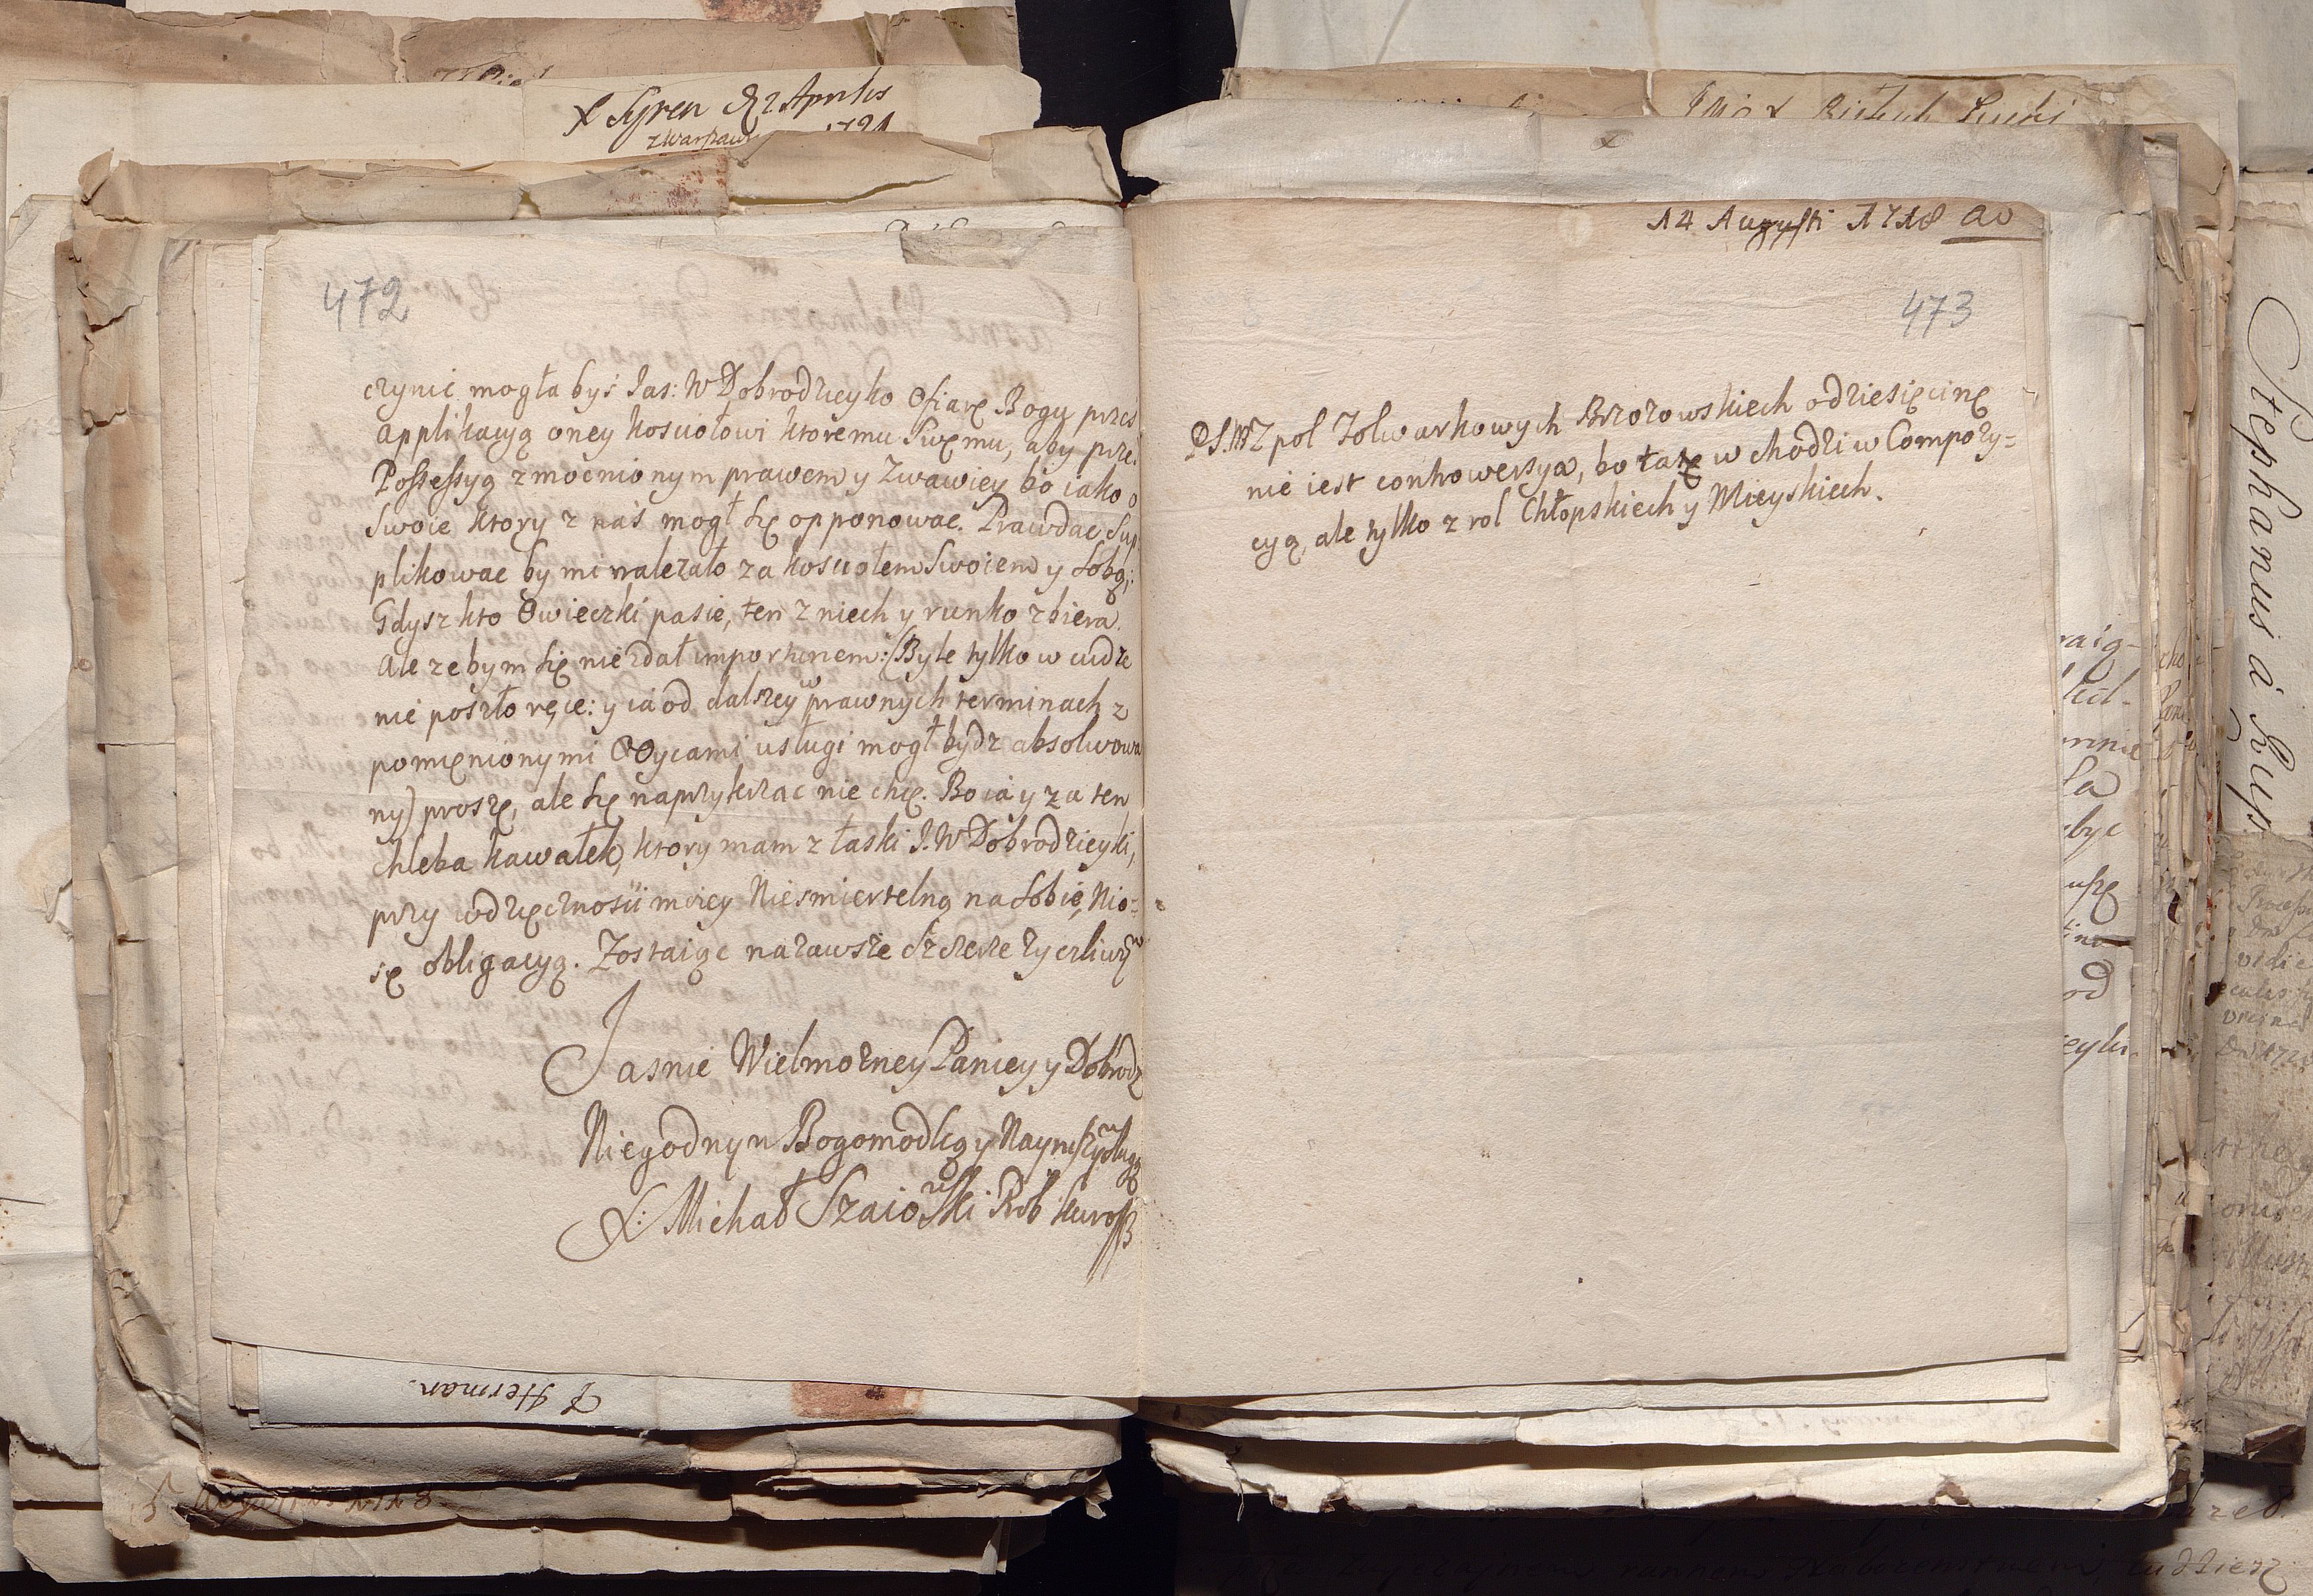 X Syren D 2 Aprilis
z Warszawy 1721
472
czynić mogła byś Jas: W Dobrodzieyko Ofiarę Bogu przez
applikacyą oney kosciołowi ktoremu Swemu, aby prze
Possessyą zmocnionym prawem y Zwawiey bo iako o
Swoie ktory z nas mogł się opponowac. Prawdac Sup
plikowac by mi nalezało za kosciołem Swoiem y Sobą;
Gdysz kto Owieczki pasie, ten z niech y runko zbiera.
Ale zebym się nie zdał importunem: (Byle tylko w cudze
nie poszło ręce: y ia od dalszey w prawnych terminach z
pomięnionymi Oycami usługi mogł bydz absolwowa
ny) proszę, ale się naprzykrzac nie chcę. Bo ia y za ten
chleba kawałek, ktory mam z łaski J. W Dobrodzieyki,
przy wdzięcznosci moiey Niesmiertelną na Sobie, Nio=
sę obligacyą. Zostaiąc nazawsze Szczerze zyczliwym
Jasnie Wielmozney Paniey y Dobrodz
Niegodnym Bogomodlcą y Naynisszym sługą
X: Michał Szaiowski Prob kurosz
J Herman.
5 Augusti 1718
14 Augusti 1718 ao
473
PS. Z pol Folwarkowych Brzozowskiech o dziesięcinę
nie iest controwersya, bo ta się w chodzi w Compozy=
cyą, ale tylko z rol Chłopskiech y Mieyskiech.
Stephanus à